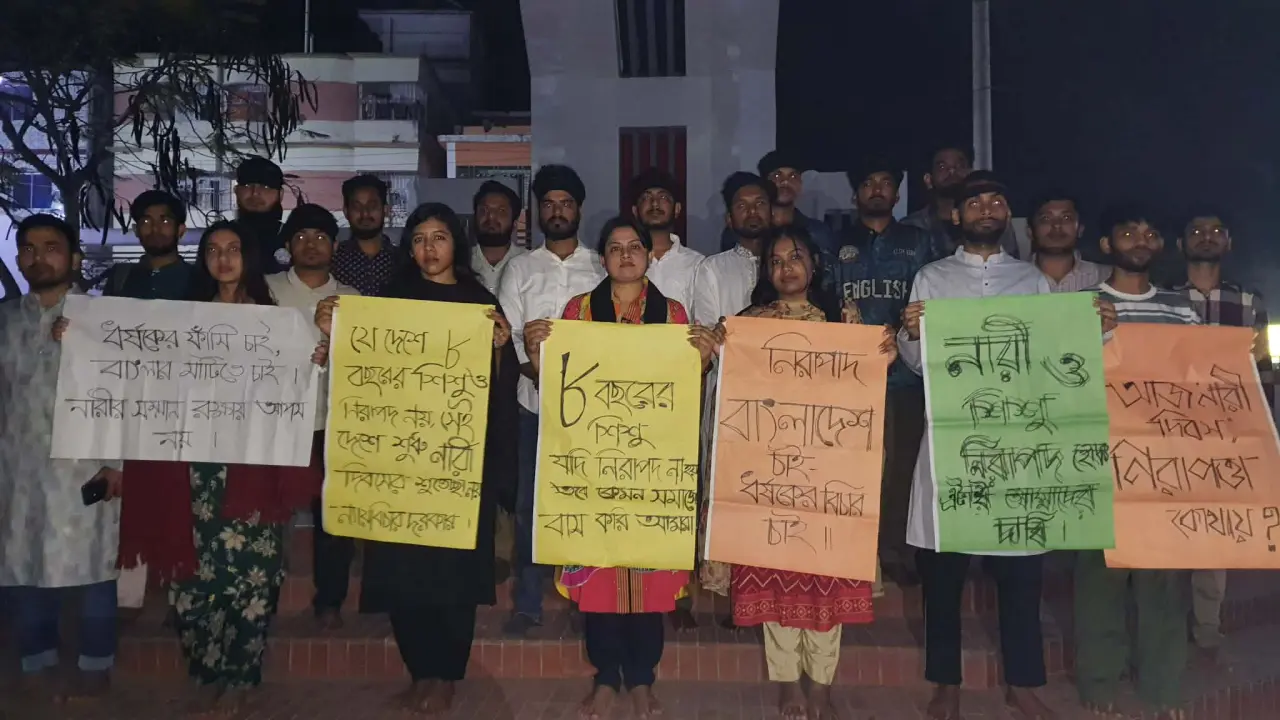 ধর্ষকের ফাঁসি চাই,
বাংলার মাটিতে চাই ।
নারীর সম্মান রক্ষায় আপস
নয় ।
যে দেশে ৮
বছরের শিশুও
নিরাপদ নয়, সেই
দেশে শুধু নারী
দিবসের শুভেচ্ছা নয়
ন্যায়বিচার দরকার ।
৮ বছরের
শিশু
যদি নিরাপদ না হয়
তবে কেমন সমাজে
বাস করি আমরা
নিরাপদ
বাংলাদেশ
চাই-
ধর্ষকের বিচার
চাই ॥
ENGLISH
নারী ও
শিশু
নিরাপদ হোক
এটাই আমাদের
দাবি ।
আজ নারী
দিবস,
নিরাপত্তা
কোথায় ?